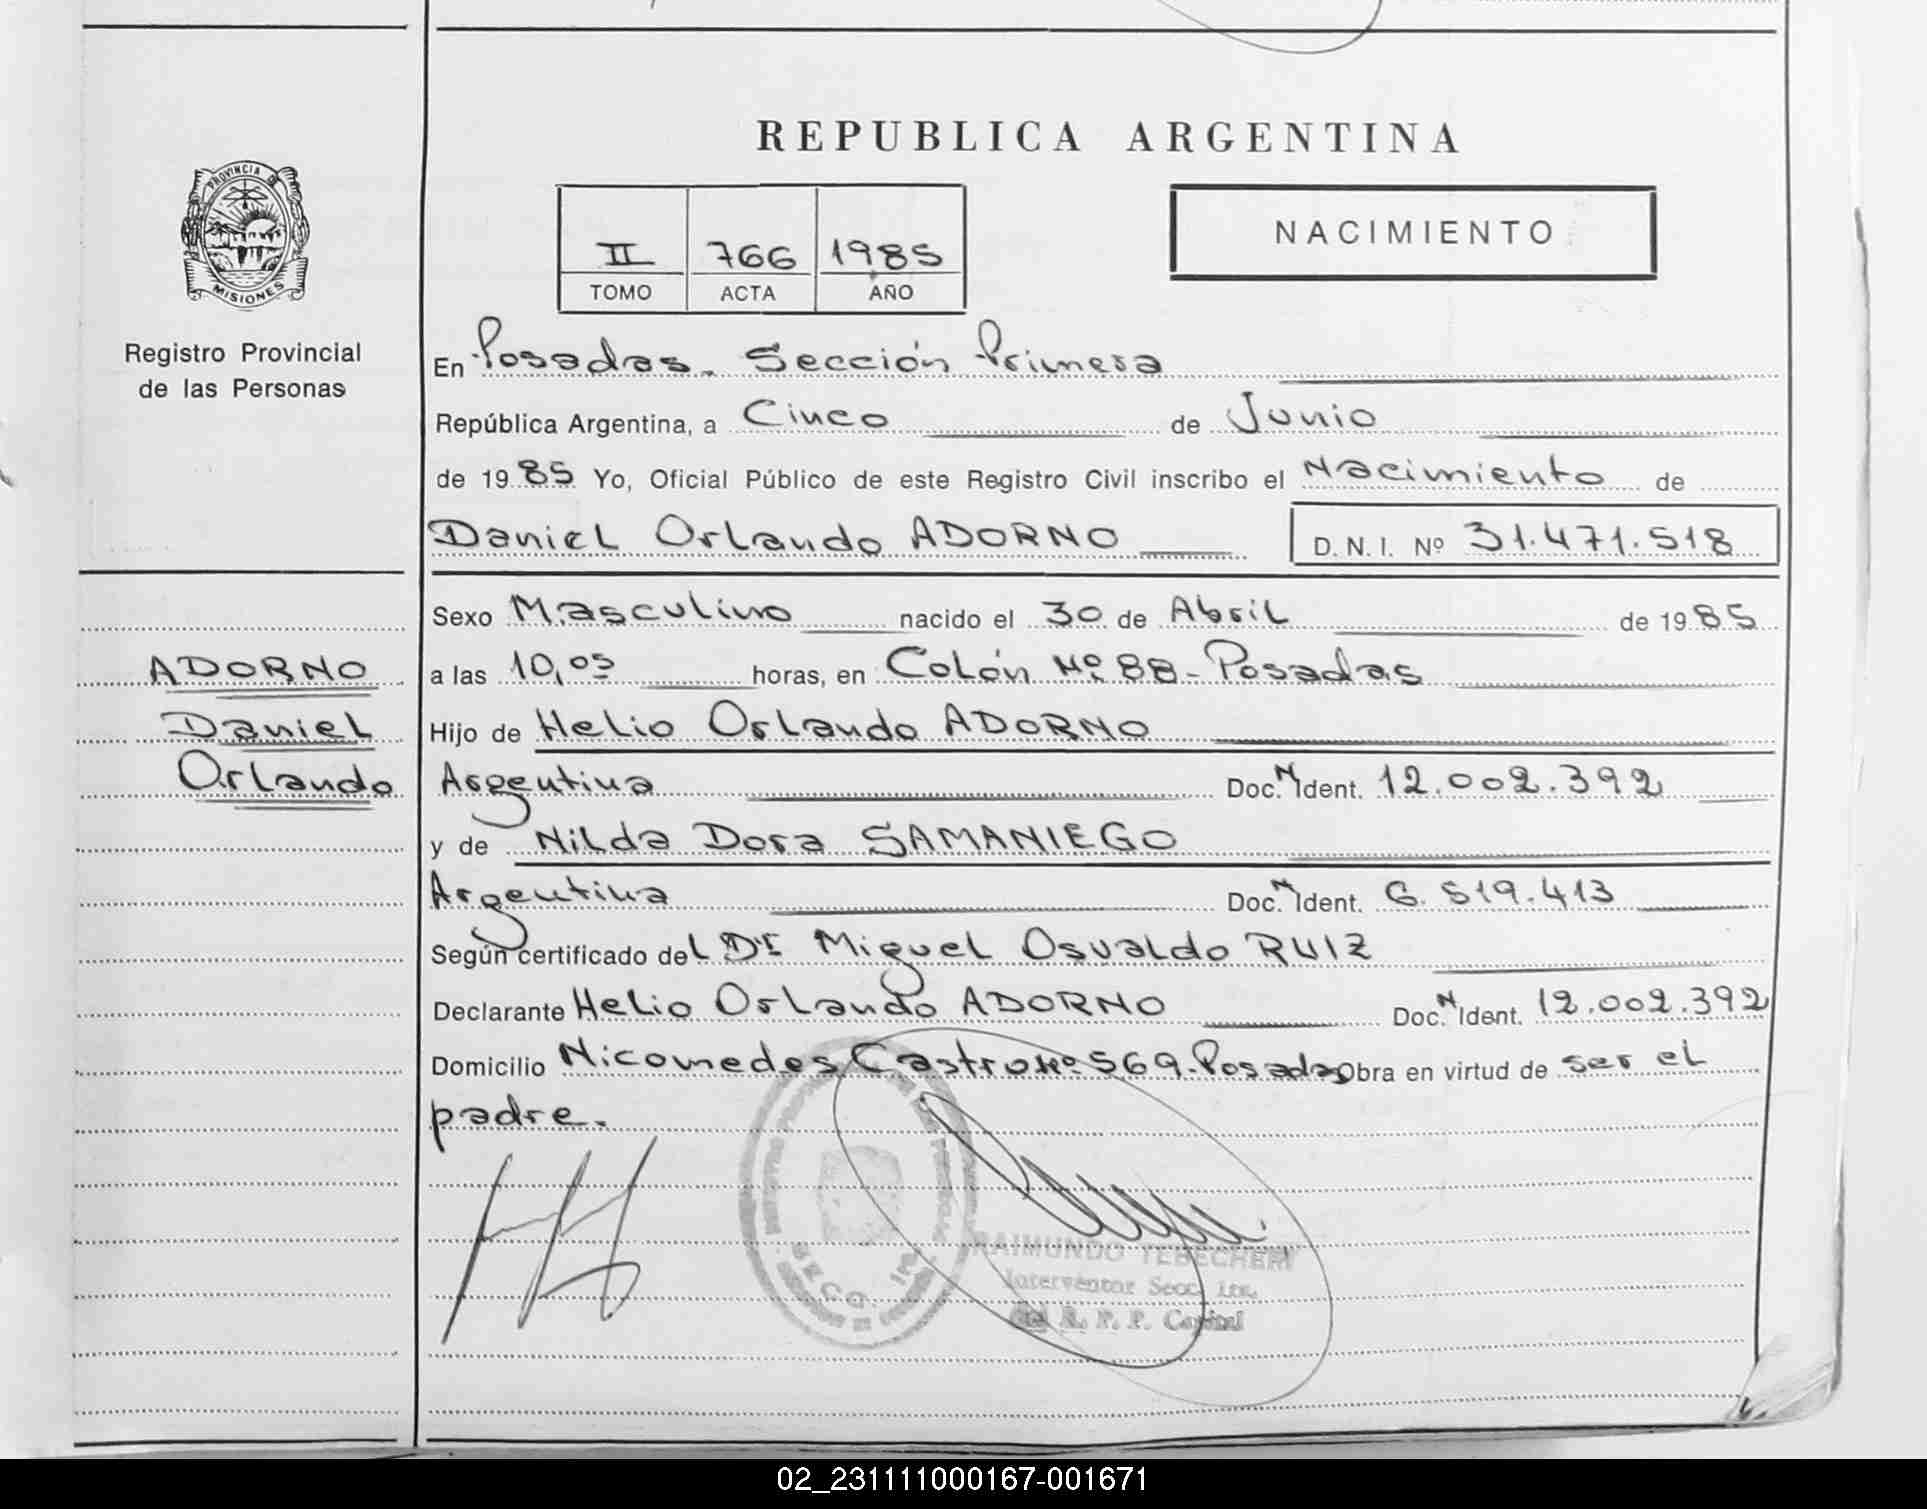 REPUBLICA ARGENTINA
PROVINCIA DE
MISIONES
Registro Provincial
de las Personas
NACIMIENTO
II 766 1985
TOMO ACTA AÑO
En Posadas. Sección Primera
República Argentina, a Cinco de Junio
de 1985 Yo, Oficial Público de este Registro Civil inscribo el Nacimiento de
Daniel Orlando ADORNO D.N.I. Nº 31.471.518
Sexo Masculino nacido el 30 de Abril de 1985
a las 10,05 horas, en Colón Nº 88 - Posadas
Hijo de Helio Orlando ADORNO
Argentina Doc. N Ident. 12.002.392
y de Nilda Dora SAMANIEGO
Argentina Doc. N Ident. 6.519.413
Según certificado del Dr Miguel Osvaldo RUIZ
Declarante Helio Orlando ADORNO Doc. N Ident. 12.002.392
Domicilio Nicomedes Castro Nº 569-Posadas Obra en virtud de ser el
padre.
ADORNO
Daniel
Orlando
SECC. 1ra
RAIMUNDO
Interventor Secc. 1ra.
R. P. P. Capital
02_231111000167-001671